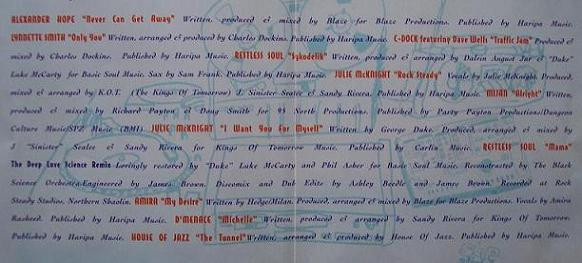 ALEXANDER HOPE "Never Can Get Away" Written, produced & mixed by Blaze for Blaze Productions. Published by Haripa Music.
LYNDETTE SMITH "Only You" Written, produced & mixed by Charles Dockins. Published by Haripa Music. C-DOCK featuring Dave Wells "Traffic Jam" Produced &
mixed by Charles Dockins. Published by Haripa Music. RESTLESS SOUL "Sykodelik" Written, produced & arranged by August Jar & "Duke"
Luke McCarty for Basic Soul Music. Sax by Sam Frank. Published by Haripa Music. JULIE McKNIGHT "Rock Steady" Vocals by Julie McKnight. Produced,
mixed & arranged by K.O.T. (The Kings Of Tomorrow) J. Sinister Seate & Sandy Rivera. Published by Haripa Music. "Alright" Written,
produced & mixed by Richard Payton & Doug Smith for 95 North Productions. Published by Party Payton Productions/Dungeon
Culture Music/SPZ Music (BMI). JULIE McKNIGHT "I Want You For Myself" Written by George Duke. Produced, arranged & mixed by
J "Sinister" Sealee & Sandy Rivera for Kings Of Tomorrow Music. Published by Carlin Music. RESTLESS SOUL "Mama"
The Deep Love Science Remix Lovingly restored by "Duke" Luke McCarty and Phil Asher for Basic Soul Music. Reconstructed by The Black
Science Orchestra. Engineered by James Brown. Discomix and Dub Edits by Ashley Beedle and James Brown. Recorded at Rock
Steady Studios, Northern Shaolin. AMIRA "My Desire" Written by Hedge/Milan. Produced, arranged & mixed by Blaze for Blaze Productions. Vocals by Amira
Rasheed. Published by Haripa Music. D'MENACE "Michelle" Written, produced & arranged by Sandy Rivera for Kings Of Tomorrow.
Published by Haripa Music. HOUSE OF JAZZ "The Tunnel" Written, arranged & produced by House Of Jazz. Published by Haripa Music.